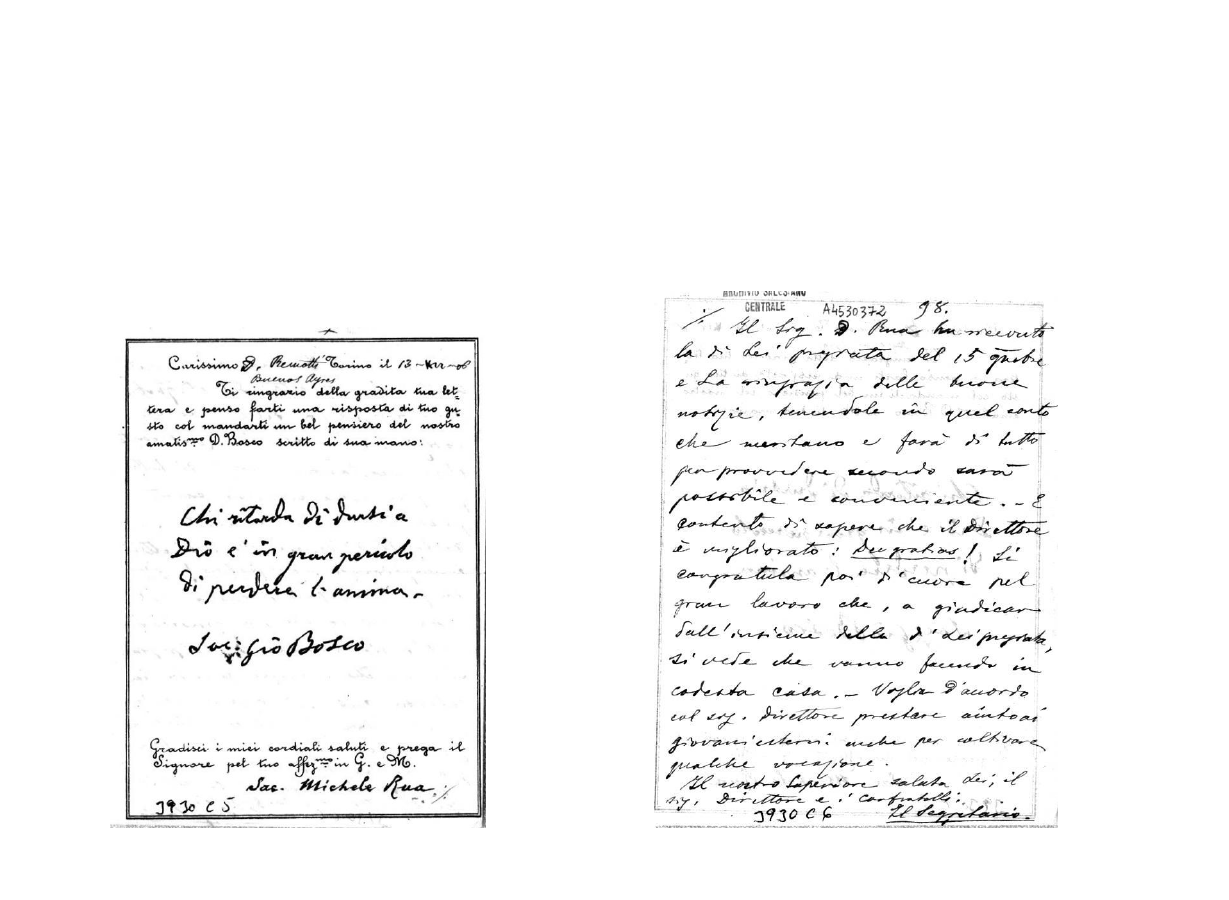 Carissimo D. Remotti Torino il 13 - XII - 06
Buenos Ayres
Ti ringrazio della gradita tua let-
tera e penso farti una risposta di tuo gu-
sto col mandarti un bel pensiero del nostro
amatis.mo D. Bosco scritto di sua mano:
Chi ritarda di darsi a
Dio è in gran pericolo
di perdere l'anima.
Sac. Gio Bosco
Gradisci i miei cordiali saluti e prega il
Signore pel tuo affez.mo in G. e M.
Sac. Michele Rua ./.
3930 C5
ARCHIVIO SALESIANO
CENTRALE A4530372 98.
./. Il Sig. D. Rua ha ricevuto
la di Lei pregiata del 15
e La ringrazia delle buone
notizie, tenendole in quel conto
che meritano e farà di tutto
per provvedere secondo sarà
possibile e conveniente. - È
contento di sapere che il Direttore
è migliorato: Deo gratias! Si
congratula poi di cuore pel
gran lavoro che, a giudicar
dall'insieme della di Lei pregiata,
si vede che vanno facendo in
codesta casa. - Voglia d'accordo
col sig. Direttore prestare aiuto ai
giovani esterni: anche per coltivare
qualche vocazione.
Il nostro Superiore saluta Lei, il
sig. Direttore e i confratelli.
3930 C6 Il Segretario.